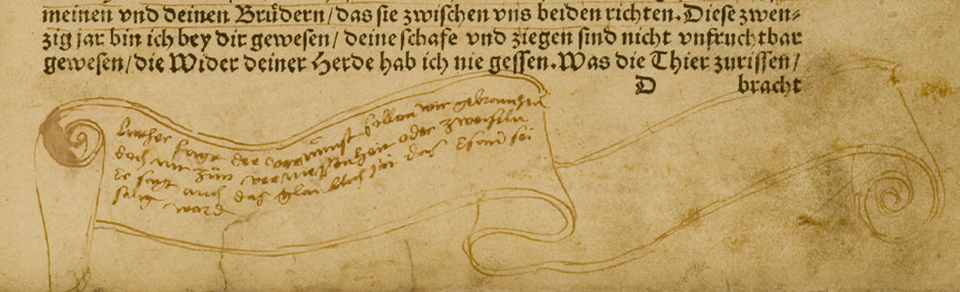 meinen vnd deinen Brüdern/das sie zwischen vns beiden richten. Diese zwen⸗
zig jar bin ich bey dir gewesen/ deine schafe vnd ziegen sind nicht vnfruchtbar
gewesen/die Wider deiner Herde hab ich nie gessen. Was die Thier zurissen/
D bracht
luther sagt der vernunft sollen wir gebrauchen
doch nit zum vermessenheit oder zweifeln
Er sagt auch das glaublich sei das Esau sei
selig word